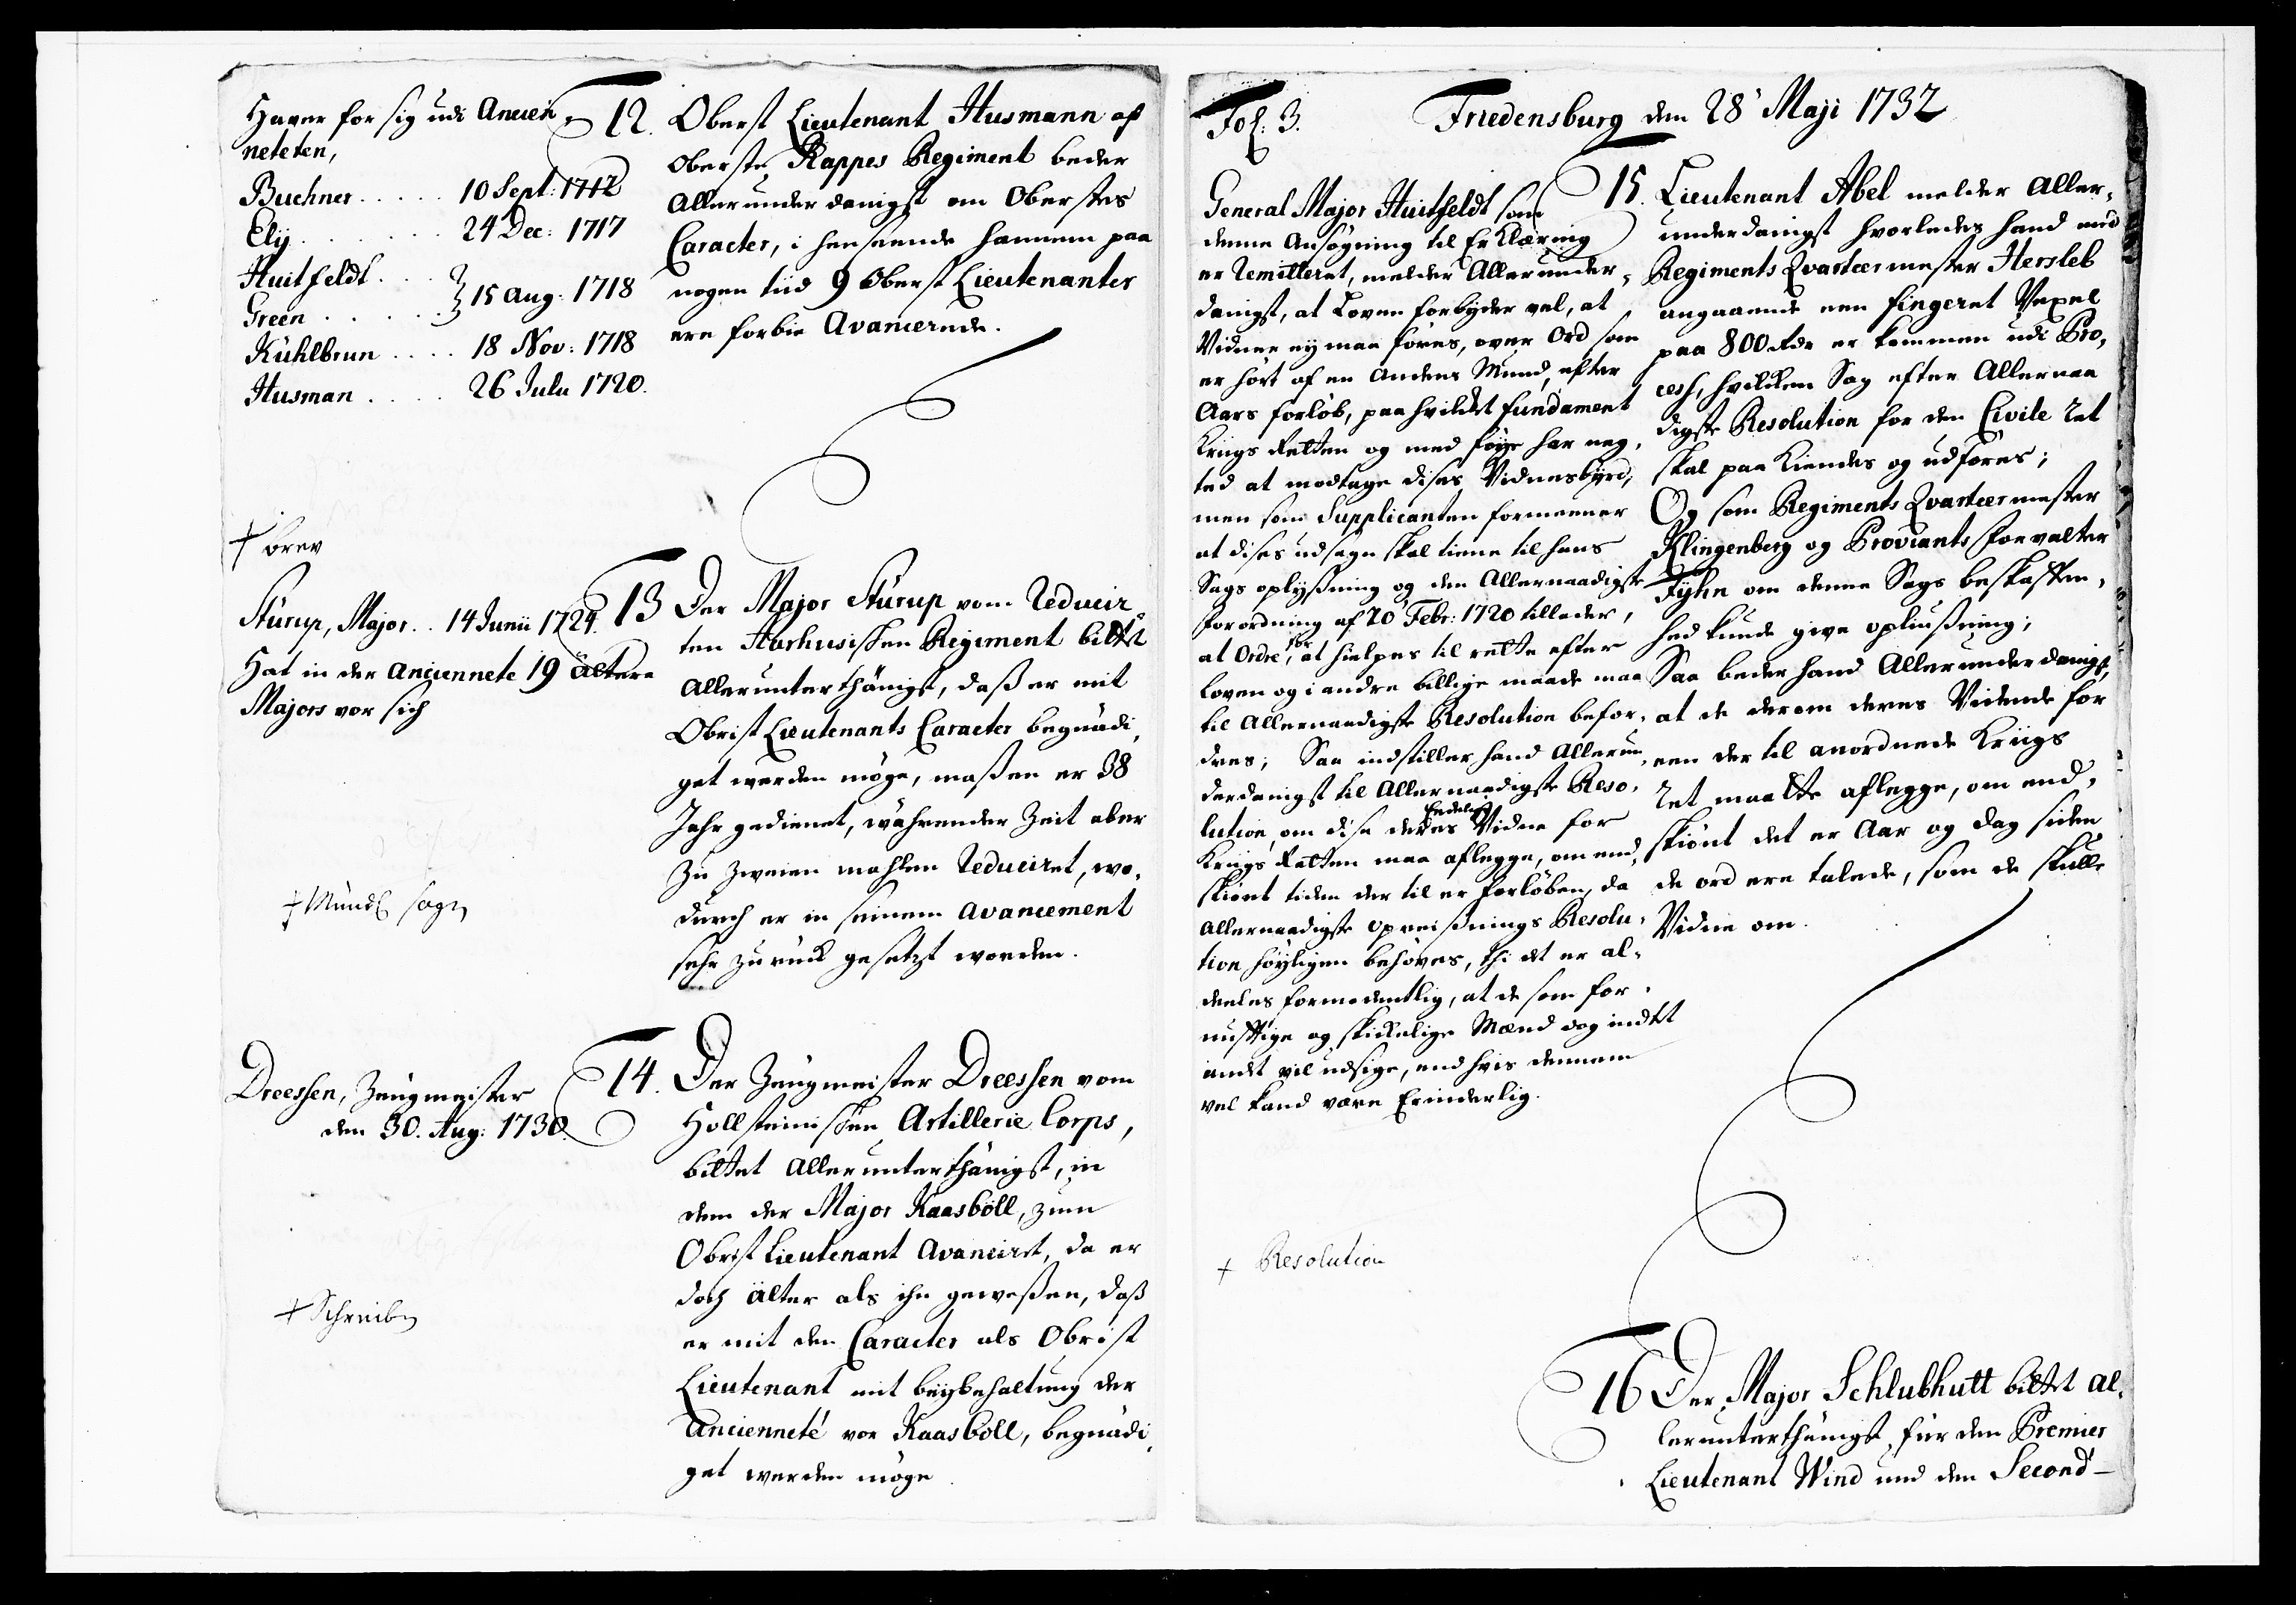 Haver for sig udi Ancien
neteten,
Buchner ..... 10 Sept: 1712
Ely ....... 24 Dec: 1717
Huitfeldt ...
Green ..... } 15 Aug: 1718
Kühlbrun .... 18 Nov: 1718
Husman .... 26 Julii 1720.
† brev
Stürup, Major .. 14 Junii 1724.
Hat in der Anciennete 19 ältere
Majors vor sich
† Mündl sagn
Dreessen, Zeugmeister
den 30. Aug: 1730.
† Schreibn
12. Oberst Lieutenant Husmann af
Oberste Kappes Regiment beder
Allerunderdanigst om Oberstes
Caracter, i henseende hannem paa
nogen tiid 9 Oberst Lieutenanter
ere forbie Avancerede.
13 Der Major Stürup vom Reducir
ten Aarhusischen Regiment bittet
Allerunterthänigst, daß er mit
Obrist Lieutenants Caracter begnädi,
get werden möge, maßen er 38
Jahr gedienet, währender Zeit aber
zu zweien mahlen Reduciret, wo,
durch er in seinem Avancement
sehr zurück gesetzt worden.
14. Der Zeugmeister Dreessen vom
Hollsteinischen Artillerie Corps,
bittet Allerunterthänigst, in
dem der Major Kaasböll, zum
Obrist Lieutenant Avanciret, da er
doch älter als ihn geweßen, daß
er mit den Caracter als Obrist
Lieutenant mit beybehaltung der
Ancienneté vor Kaasböll, begnädi,
get werden möge.
Fol: 3. Friedensburg den 28 Maji 1732
General Major Huitfeldt som
denne Ansøgning til Erklæring
er Remitteret, melder Allerunder,
danigst, at Loven forbyder vel, at
Vidner ey maa føres, over Ord som
er hørt af en Andens Mund, efter
Aars forløb, paa hvilket fundament
Kriigs Retten og med føye har neg,
ted at modtage dises Vidnesbyrd,
men som Supplicanten formeener
at dises udsagn skal tiene til hans
Sags oplysning og den Allernaadigste
forordning af 20 Febr: 1720 tillader,
at Ordre, at hielpes til rette efter
Loven og i andre billige maade maa
til Allernaadigste Resolution befor,
dres; Saa indstiller hand Allerun,
derdanigst til Allernaadigste Reso,
lution, om dise deres Endelig Vidne for
Kriigs Retten maa aflegge, om end,
skiønt tiden der til er forløben, da
Allernaadigste opreisnings Resolu,
tion høyligen behøves, thi det er al,
deeles formodentlig, at de som for,
nuftige og skickelige Mænd dog indtet
andet vil udsige, end hvis dennem
vel kand være Erinderlig.
† Resolution
15. Lieutenant Abel melder Aller,
underdanigst hvorledes hand med
Regiments Qvarteermester Hersleb
angaaende een fingeret Vexel
paa 800 Rdr er kommen udi Pro,
cess, hvilken Sag efter Allernaa
digste Resolution for den Civile Ret
skal paa Kiendes og udføres;
Og som Regiments Qvarteermester
Klingenberg og Proviants forvalter
Fyhn om denne Sags beskaffen,
hed kunde give opliusning;
Saa beder hand Allerunderdanigst,
at de derom deres Vidende for
een der til anordnede Kriigs
Ret maatte aflegge, om end,
skiønt det er Aar og dag siden
de ord ere talede, som de skulle
Vidne om.
16 Der Major Schlubhutt bittet al,
lerunterthänigst, für den Premier
Lieutenant Wind und den Second